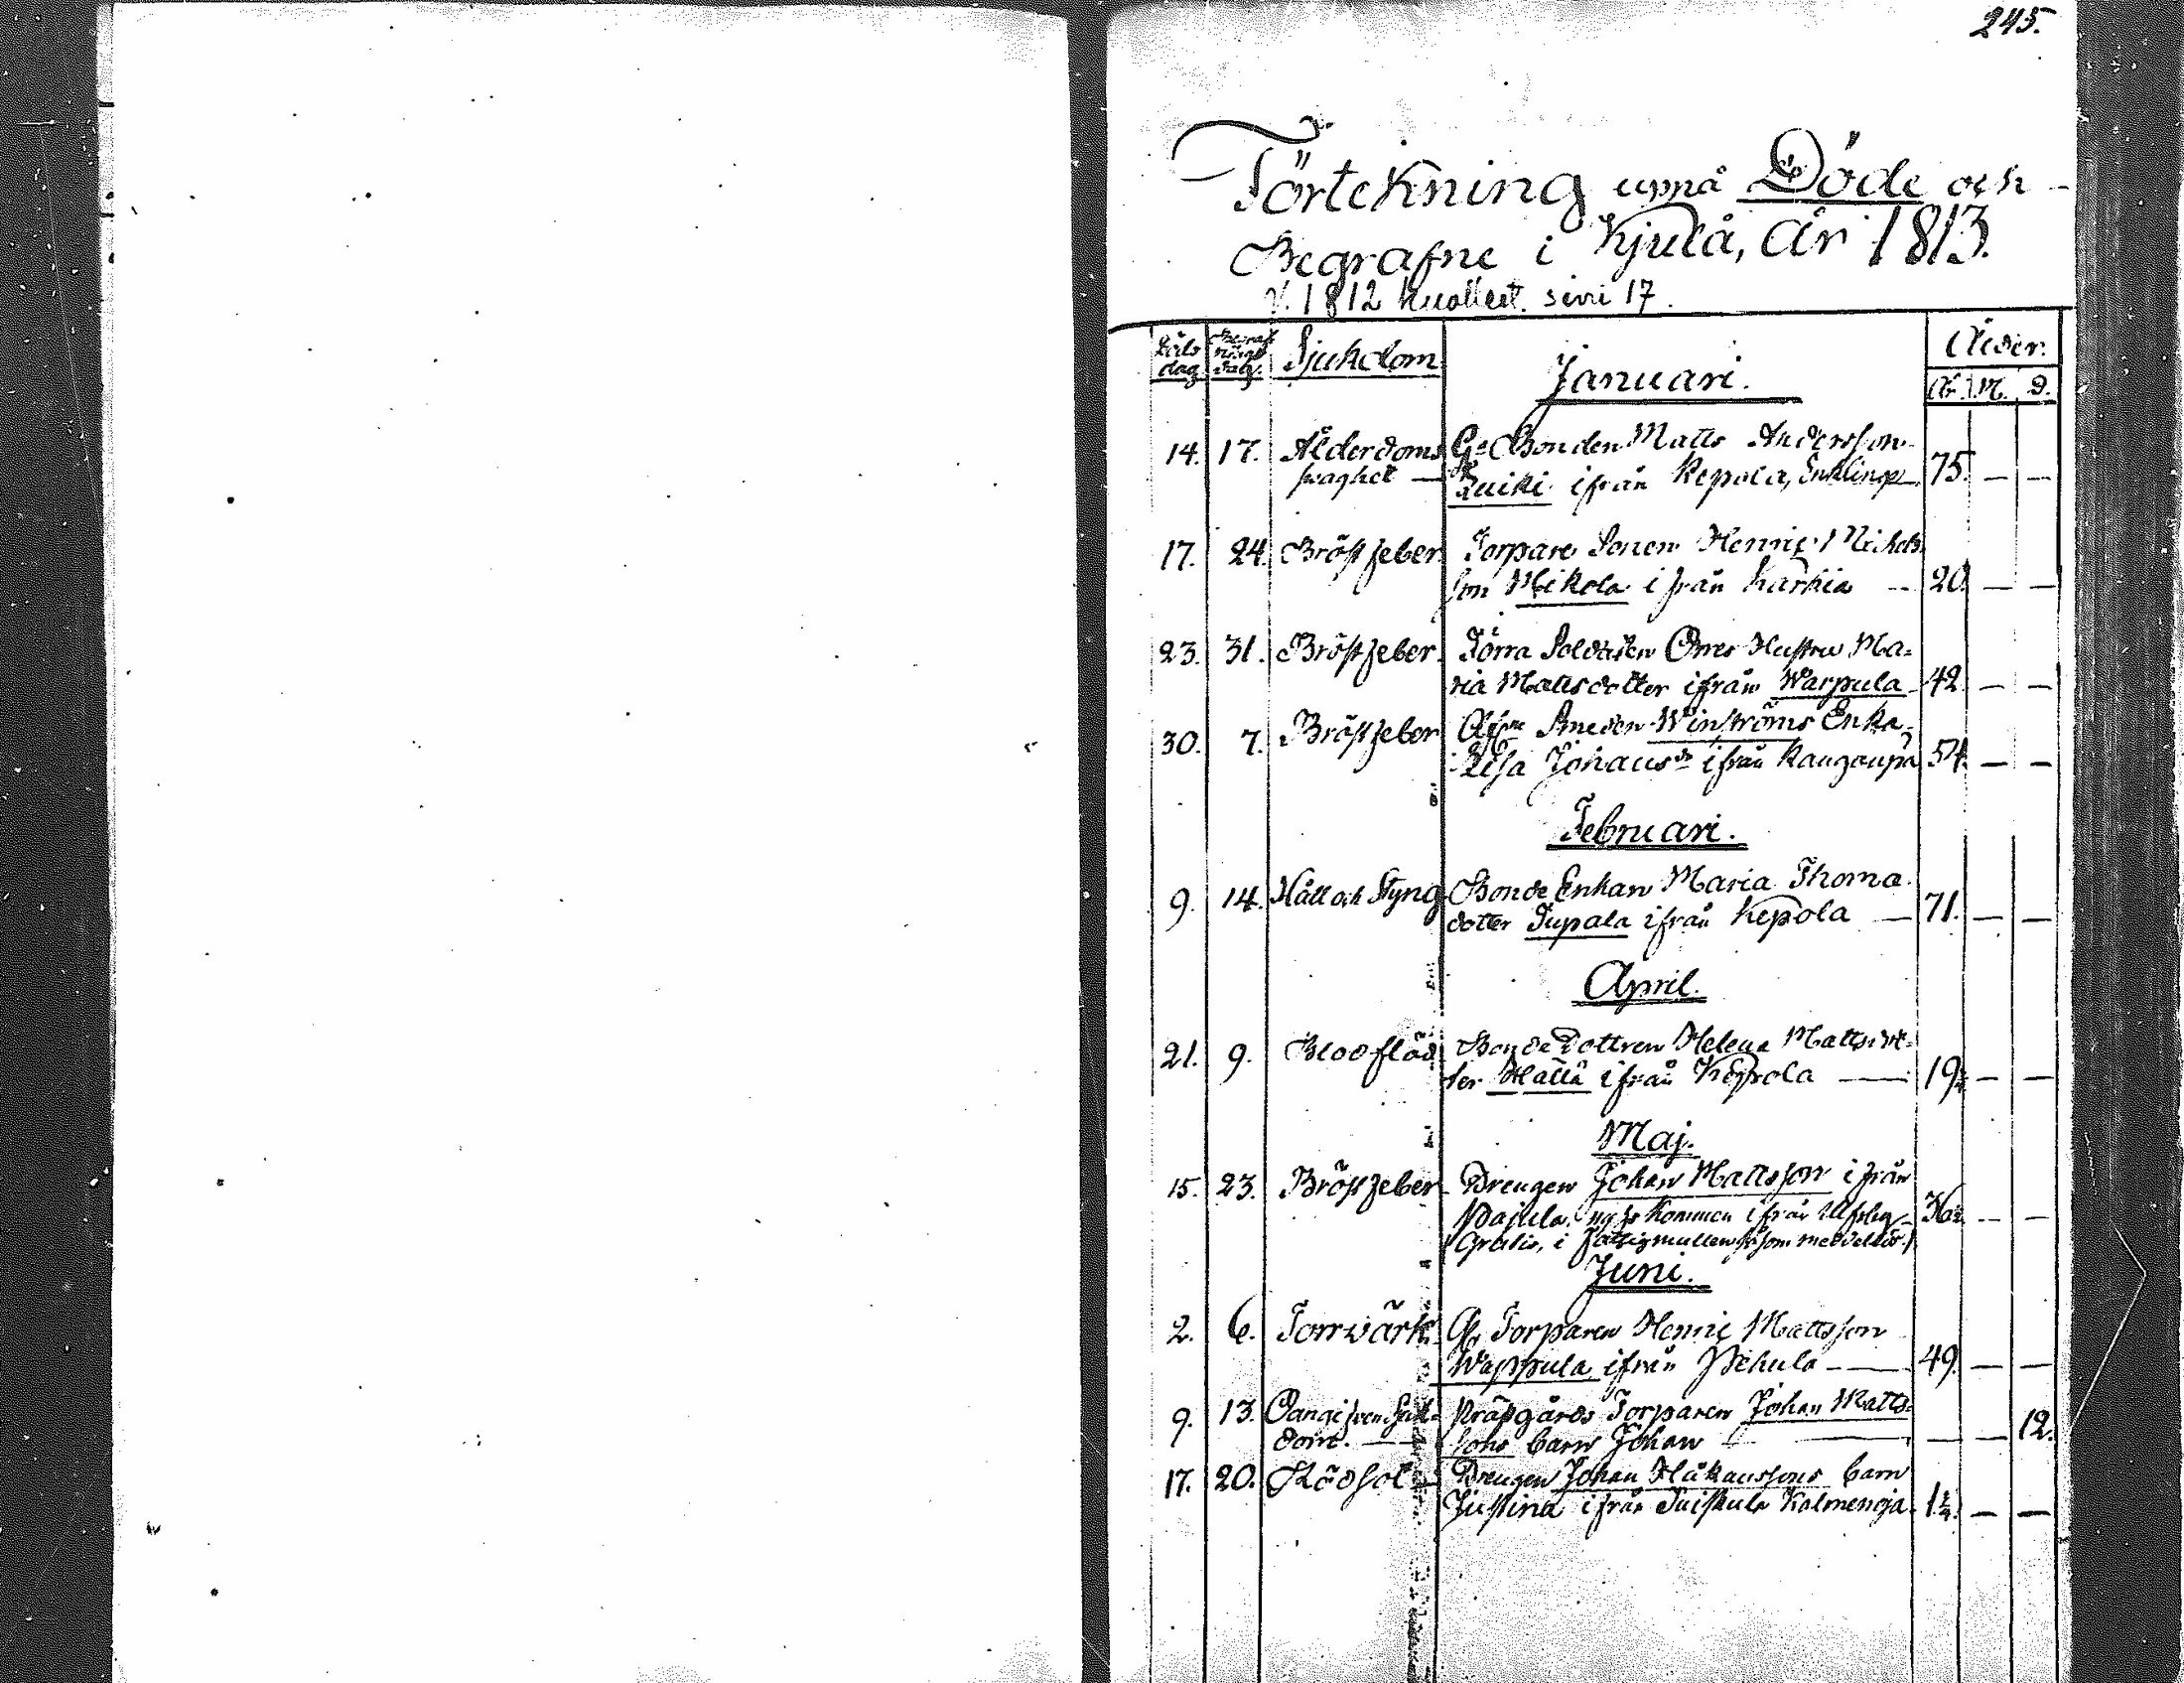 245.
Förtekning uppå Döde och
Begrafne i Kjulå, År 1813.
V. 1812 kuolleet. sivu 17.
Döds dag. Begrafnings dag. Sjukdom Januari. Ålder.
År. M. D.
14. 17. Ålderdoms Ge Bonden Matts Andersson
svaghet — ifrån Kepola, Enkling — 75. — —
17. 24. Bröstfeber Torpare Sonen Henric Michels
son Mikola ifrån Karhia — 20. — —
23. 31. Bröstfeber Förra Soldaten Orres Hustru Ma=
ria Mattsdotter ifrån Warpula 42 — —
30. 7. Bröstfeber Afsne Smeden Winströms Enka,
Lisa Johansdr ifrån Kaugaupä 54. — —
Februari.
9. 14. Håll och Styng Bonde Enkan Maria Thoma
dotter Tupala ifrån Kepola — 71. — —
April.
21. 9. Blodflöd Bonde Dottren Helena Mattsdot=
ter Hälla ifrån Kepola — 19 — —
Maj.
15. 23. Bröstfeber Drengen Johan Mattsson ifrån
Pajula, nyss kommen ifrån — 36 — —
Gratis, i såsom medellös.
Juni.
2. 6. Torrvärk Ge Torparen Henric Mattsson
Wappula ifrån Pehula — 49. — —
9. 13. Oangifven Sjuk= Prästgårds Torparen Johan Matts=
dom. — sons barn Johan — — — 12.
17. 20. Rödsot — Drengen Johan Håkanssons barn
Justina ifrån Tuiskula Kolmenoja. 1½. — —